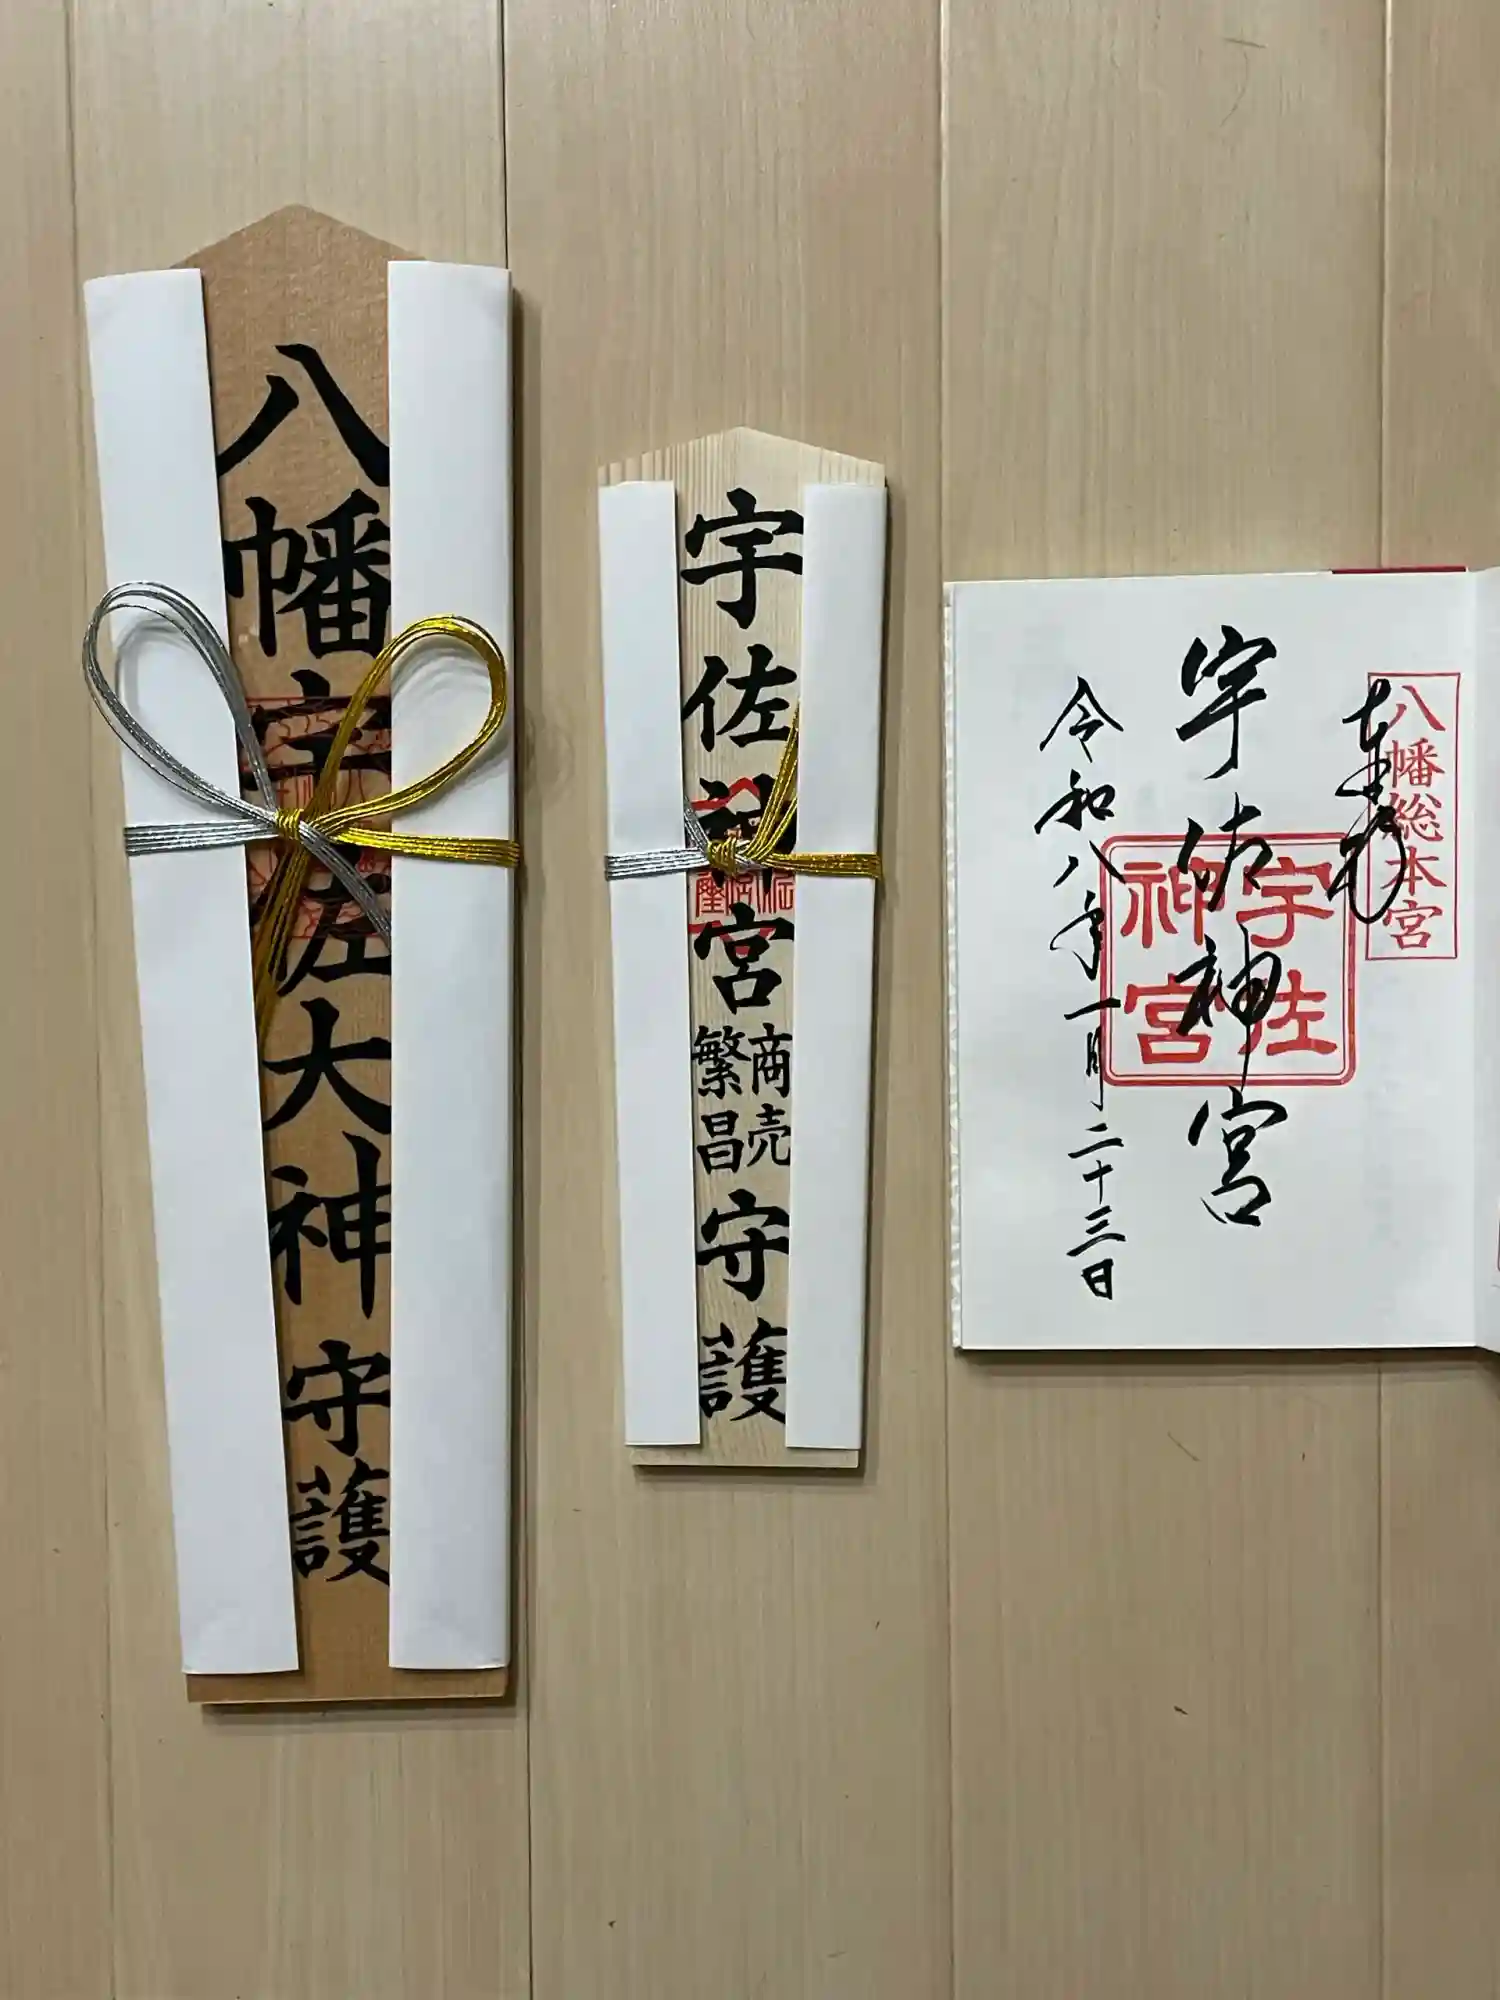 八幡宇佐大神守護
宇佐神宮
商売
繁昌
守護
八幡総本宮
奉拝
宇佐神宮
宇佐
神宮
令和八年一月二十三日